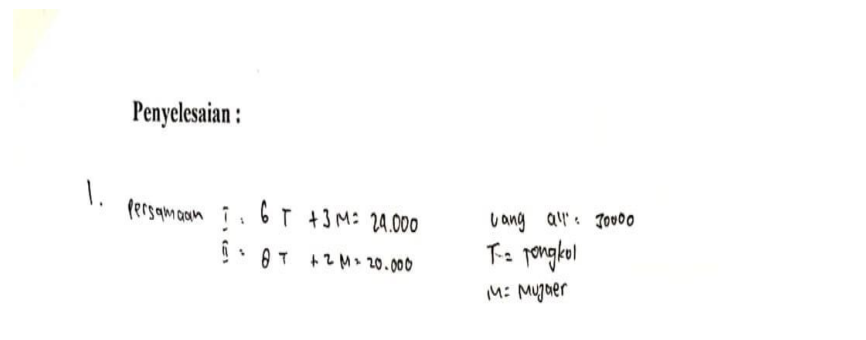 Penyelesaian :
1. Persamaan I : 6 T + 3 M = 24.000
II = 8 T + 2 M = 20.000
Uang all : 30000
T = Tongkol
M = Mujaer